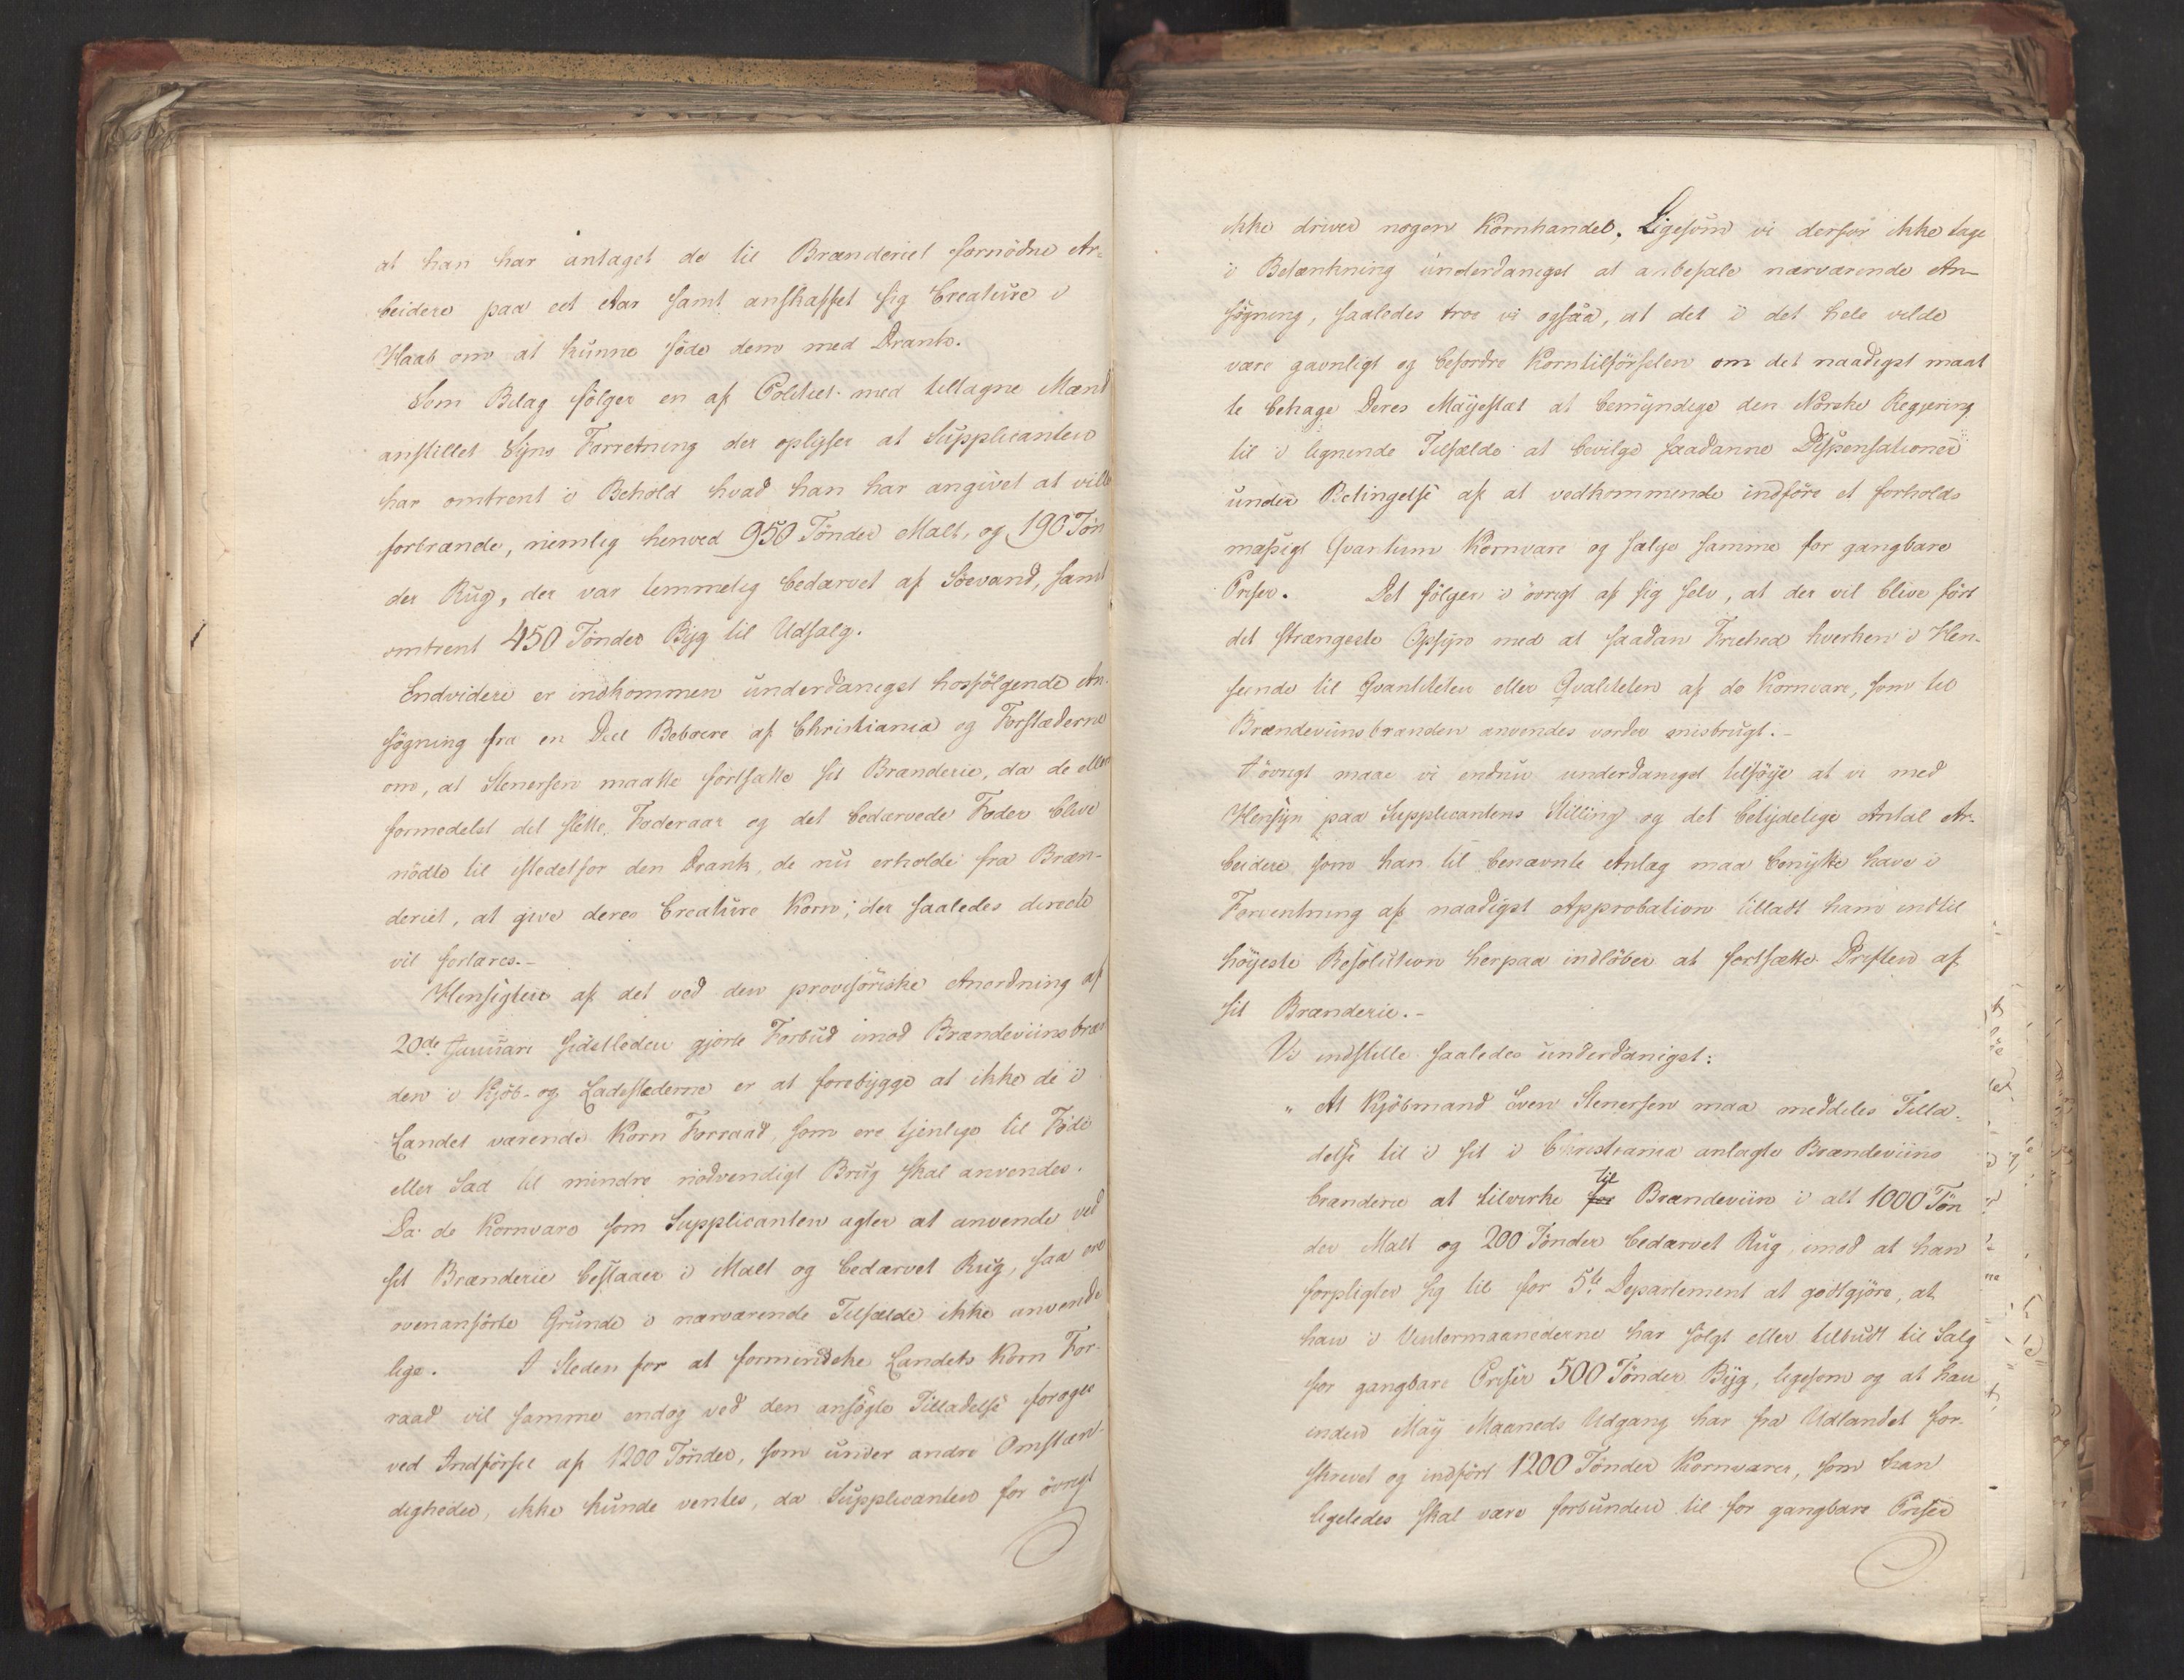 at han har antaget de til Brænderiet fornödne Ar-
beidere paa eet Aar samt anskaffet sig Creature i
Haab om at kunne föde dem med Drank.
Som Bilag fölger en af Politiet med tiltagne Mænd
anstillet Syns Forretning der oplyser at Supplicanten
har omtrent i Behold hvad han har angivet at ville
forbrænde, nemlig henved 950 Tönder Malt, og 190 Tön
der Rug, der var temmelig bedærvet af Söevand, samt
omtrent 450 Tönder Byg til Udsalg.
Endvidere er indkommen underdanigst hosfölgende An-
sögning fra en Deel Beboere af Christiania og Forstæderne
om, at Stenersen maatte fortsætte sit Brænderie, da de ellers
formedelst det slette Foderaar og det bedærvede Foder blive
nödte til istedetfor den Drank, de nu erholde fra Bræn-
deriet, at give deres Creature Korn, der saaledes directe
vil fortæres.-
Hensigten af det ved den provisöriske Anordning af
20de Januari sidstleden gjorte Forbud imod Brændeviinsbræn
den i Kjöb- og Ladestæderne er at forebygge at ikke de i
Landet værende Korn Forraad, som ere tjenlige til Föde
eller Sæd til mindre nödvendigt Brug skal anvendes.
Da de Kornvare som Supplicanten agter at anvende ved
sit Brænderie bestaaer i Malt og bedærvet Rug, saa ere
ovenanförte Grunde i nærværende Tilfælde ikke anvende
lige. I Steden for at formindske Landets Korn For-
raad vil samme endog ved den ansögte Tilladelse foröges
ved Indförsel af 1200 Tönder, som under andre Omstæn-
digheder, ikke kunde ventes, da Supplicanten for övrigt
ikke driver nogen Kornhandel. Ligesom vi derfor ikke tage
i Betænkning underdanigst at anbefale nærværende An-
sögning, saaledes troe vi ogsaa, at det i det hele vilde
være gavnligt og befordre Korntilförselen om det naadigst maat
te behage Deres Majestæt at bemyndige den Norske Regjering
til i lignende Tilfælde at bevilge saadanne Dispensationer
under Betingelse af at vedkommende indföre et forholds
mæsigt Qvantum Kornvare og sælge samme for gangbare
Priser. Det fölger i övrigt af sig selv, at der vil blive fört
det strængeste Opsyn med at saadan Friehed hverken i Hen-
seende til Qvantiteten eller Qvaliteten af de Kornvare, som til
Brændeviinsbrænden anvendes vorder misbrugt.-
I övrigt maae vi endnu underdanigst tilföye at vi med
Hensyn paa Supplicantens Stilling og det betydelige Antal Ar-
beidere som han til benævnte Anlæg maa benytte have i
Forventning af naadigst Approbation tilladt ham indtil
höyeste Resolution herpaa indlöber at fortsætte Driften af
sit Brænderie.-
Vi indstille saaledes underdanigst:
" At Kjöbmand Even Stenersen maa meddeles Tilla-
delse til i sit i Christiania anlagte Brændeviins
brænderie at tilvirke for til Brændeviin i alt 1000 Tön
der Malt og 200 Tönder bedærvet Rug, imod at han
forpligter sig til for 5te Departement at godtgjöre, at
han i Vintermaanederne har solgt eller tilbudt til Salg
for gangbare Priser 500 Tönder Byg, ligesom og at han
inden May Maaneds Udgang har fra Udlandet for-
skrevet og indfört 1200 Tönder Kornvarer, som han
ligeledes skal være forbunden til for gangbare Priser